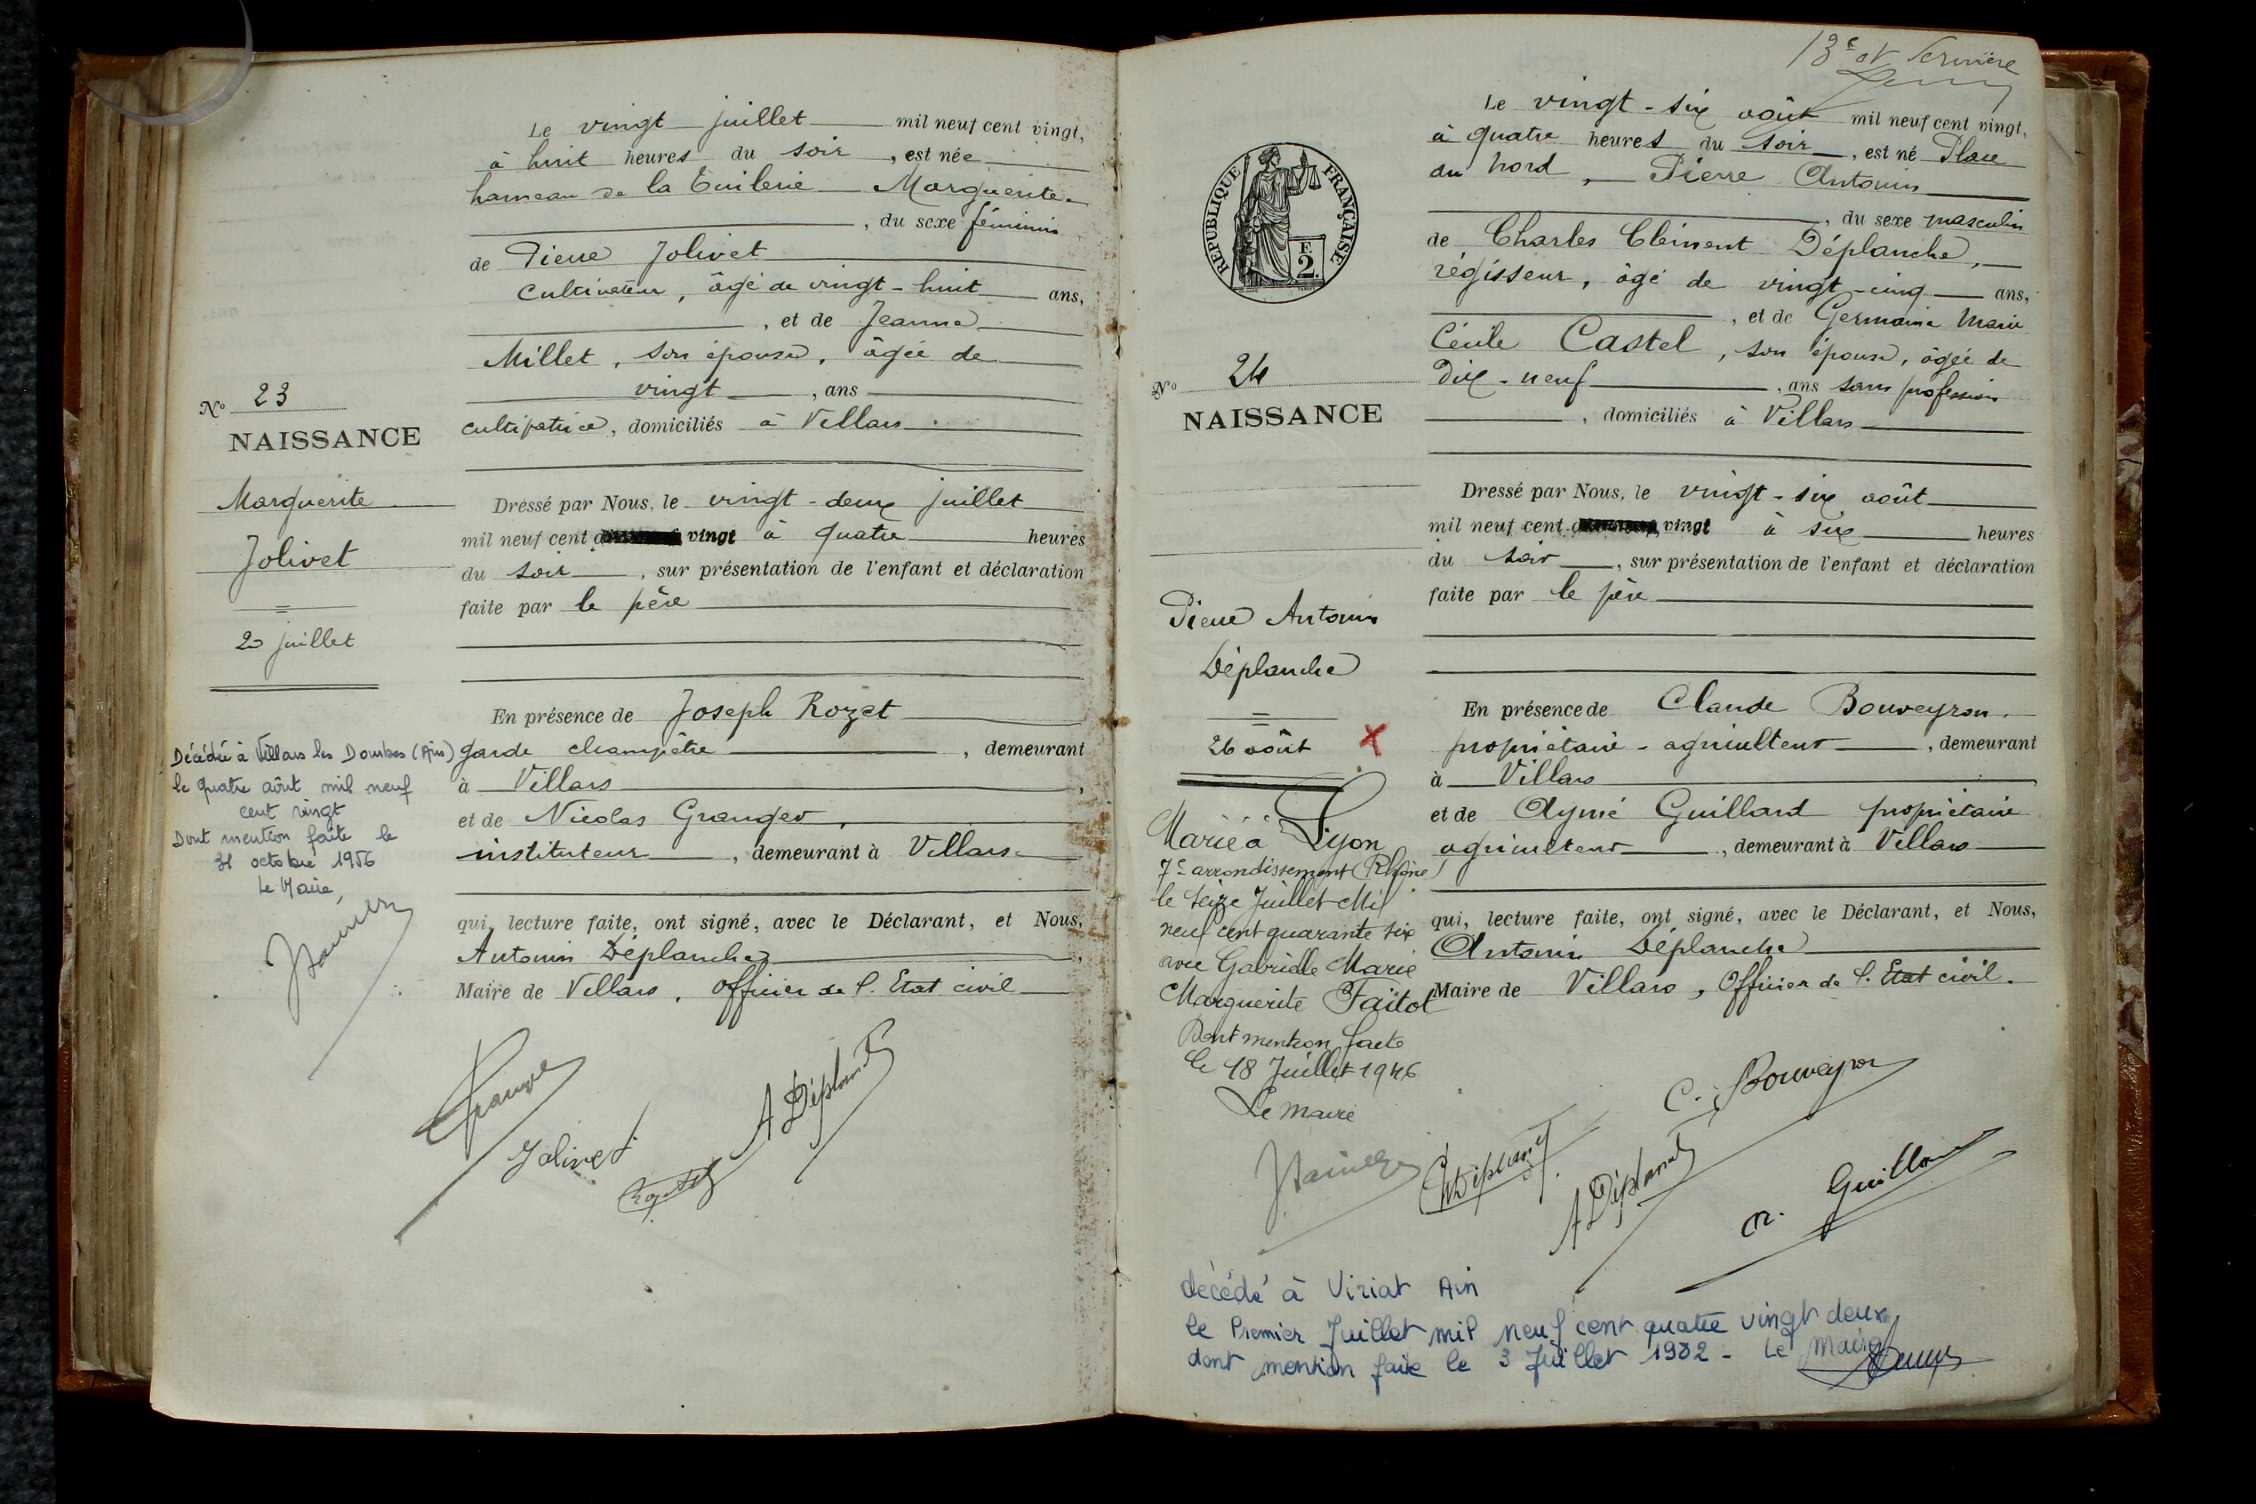 Le vingt juillet mil neuf cent vingt,
à huit heures du soir, est née
hameau de la Tuilerie Marguerite
, du sexe féminin
de Pierre Jolivet
cultivateur, âgé de vingt-huit ans,
, et de Jeanne
Millet, son épouse, âgée de
vingt, ans
cultivatrice, domiciliés à Villars
No 23
NAISSANCE
Marguerite
Jolivet
20 juillet
Dressé par Nous, le vingt-deux juillet
mil neuf cent vingt à quatre heures
du soir, sur présentation de l'enfant et déclaration
faite par le père
En présence de Joseph Rozet
garde champêtre, demeurant
à Villars,
et de Nicolas Granger,
instituteur, demeurant à Villars
qui, lecture faite, ont signé, avec le Déclarant, et Nous,
Antonin Déplanche,
Maire de Villars, Officier de l'Etat civil
Décédée à Villars les Dombes (Ain)
le quatre août mil neuf
cent vingt
Dont mention faite le
31 octobre 1956
Le Maire,
Granger
Jolivet
A Déplanche
13e et dernière
RÉPUBLIQUE FRANÇAISE
F.
2
Le vingt-six août mil neuf cent vingt,
à quatre heures du soir, est né Place
du Nord, Pierre Antonin
, du sexe masculin
de Charles Clément Déplanche,
régisseur, âgé de vingt-cinq ans,
, et de Germaine Marie
Cécile Castel, son épouse, âgée de
dix-neuf, ans sans profession
, domiciliés à Villars
No 24
NAISSANCE
Pierre Antonin
Déplanche
26 août
Dressé par Nous, le vingt-six août
mil neuf cent vingt à six heures
du soir, sur présentation de l'enfant et déclaration
faite par le père
En présence de Claude Bouveyron
propriétaire-agriculteur, demeurant
à Villars
et de Aymé Guillard propriétaire
agriculteur, demeurant à Villars
qui, lecture faite, ont signé, avec le Déclarant, et Nous,
Antonin Déplanche
Maire de Villars, Officier de l'Etat civil.
Marié à Lyon
7e arrondissement (Rhône)
le seize Juillet Mil
neuf cent quarante six
avec Gabrielle Marie
Marguerite Faitot
Dont mention faite
le 18 Juillet 1946
Le Maire
C. Bouveyron
Déplanche
A Déplanche
Guillard
décédé à Viriat Ain
le Premier Juillet mil neuf cent quatre vingt deux
dont mention faite le 3 Juillet 1982 - Le Maire